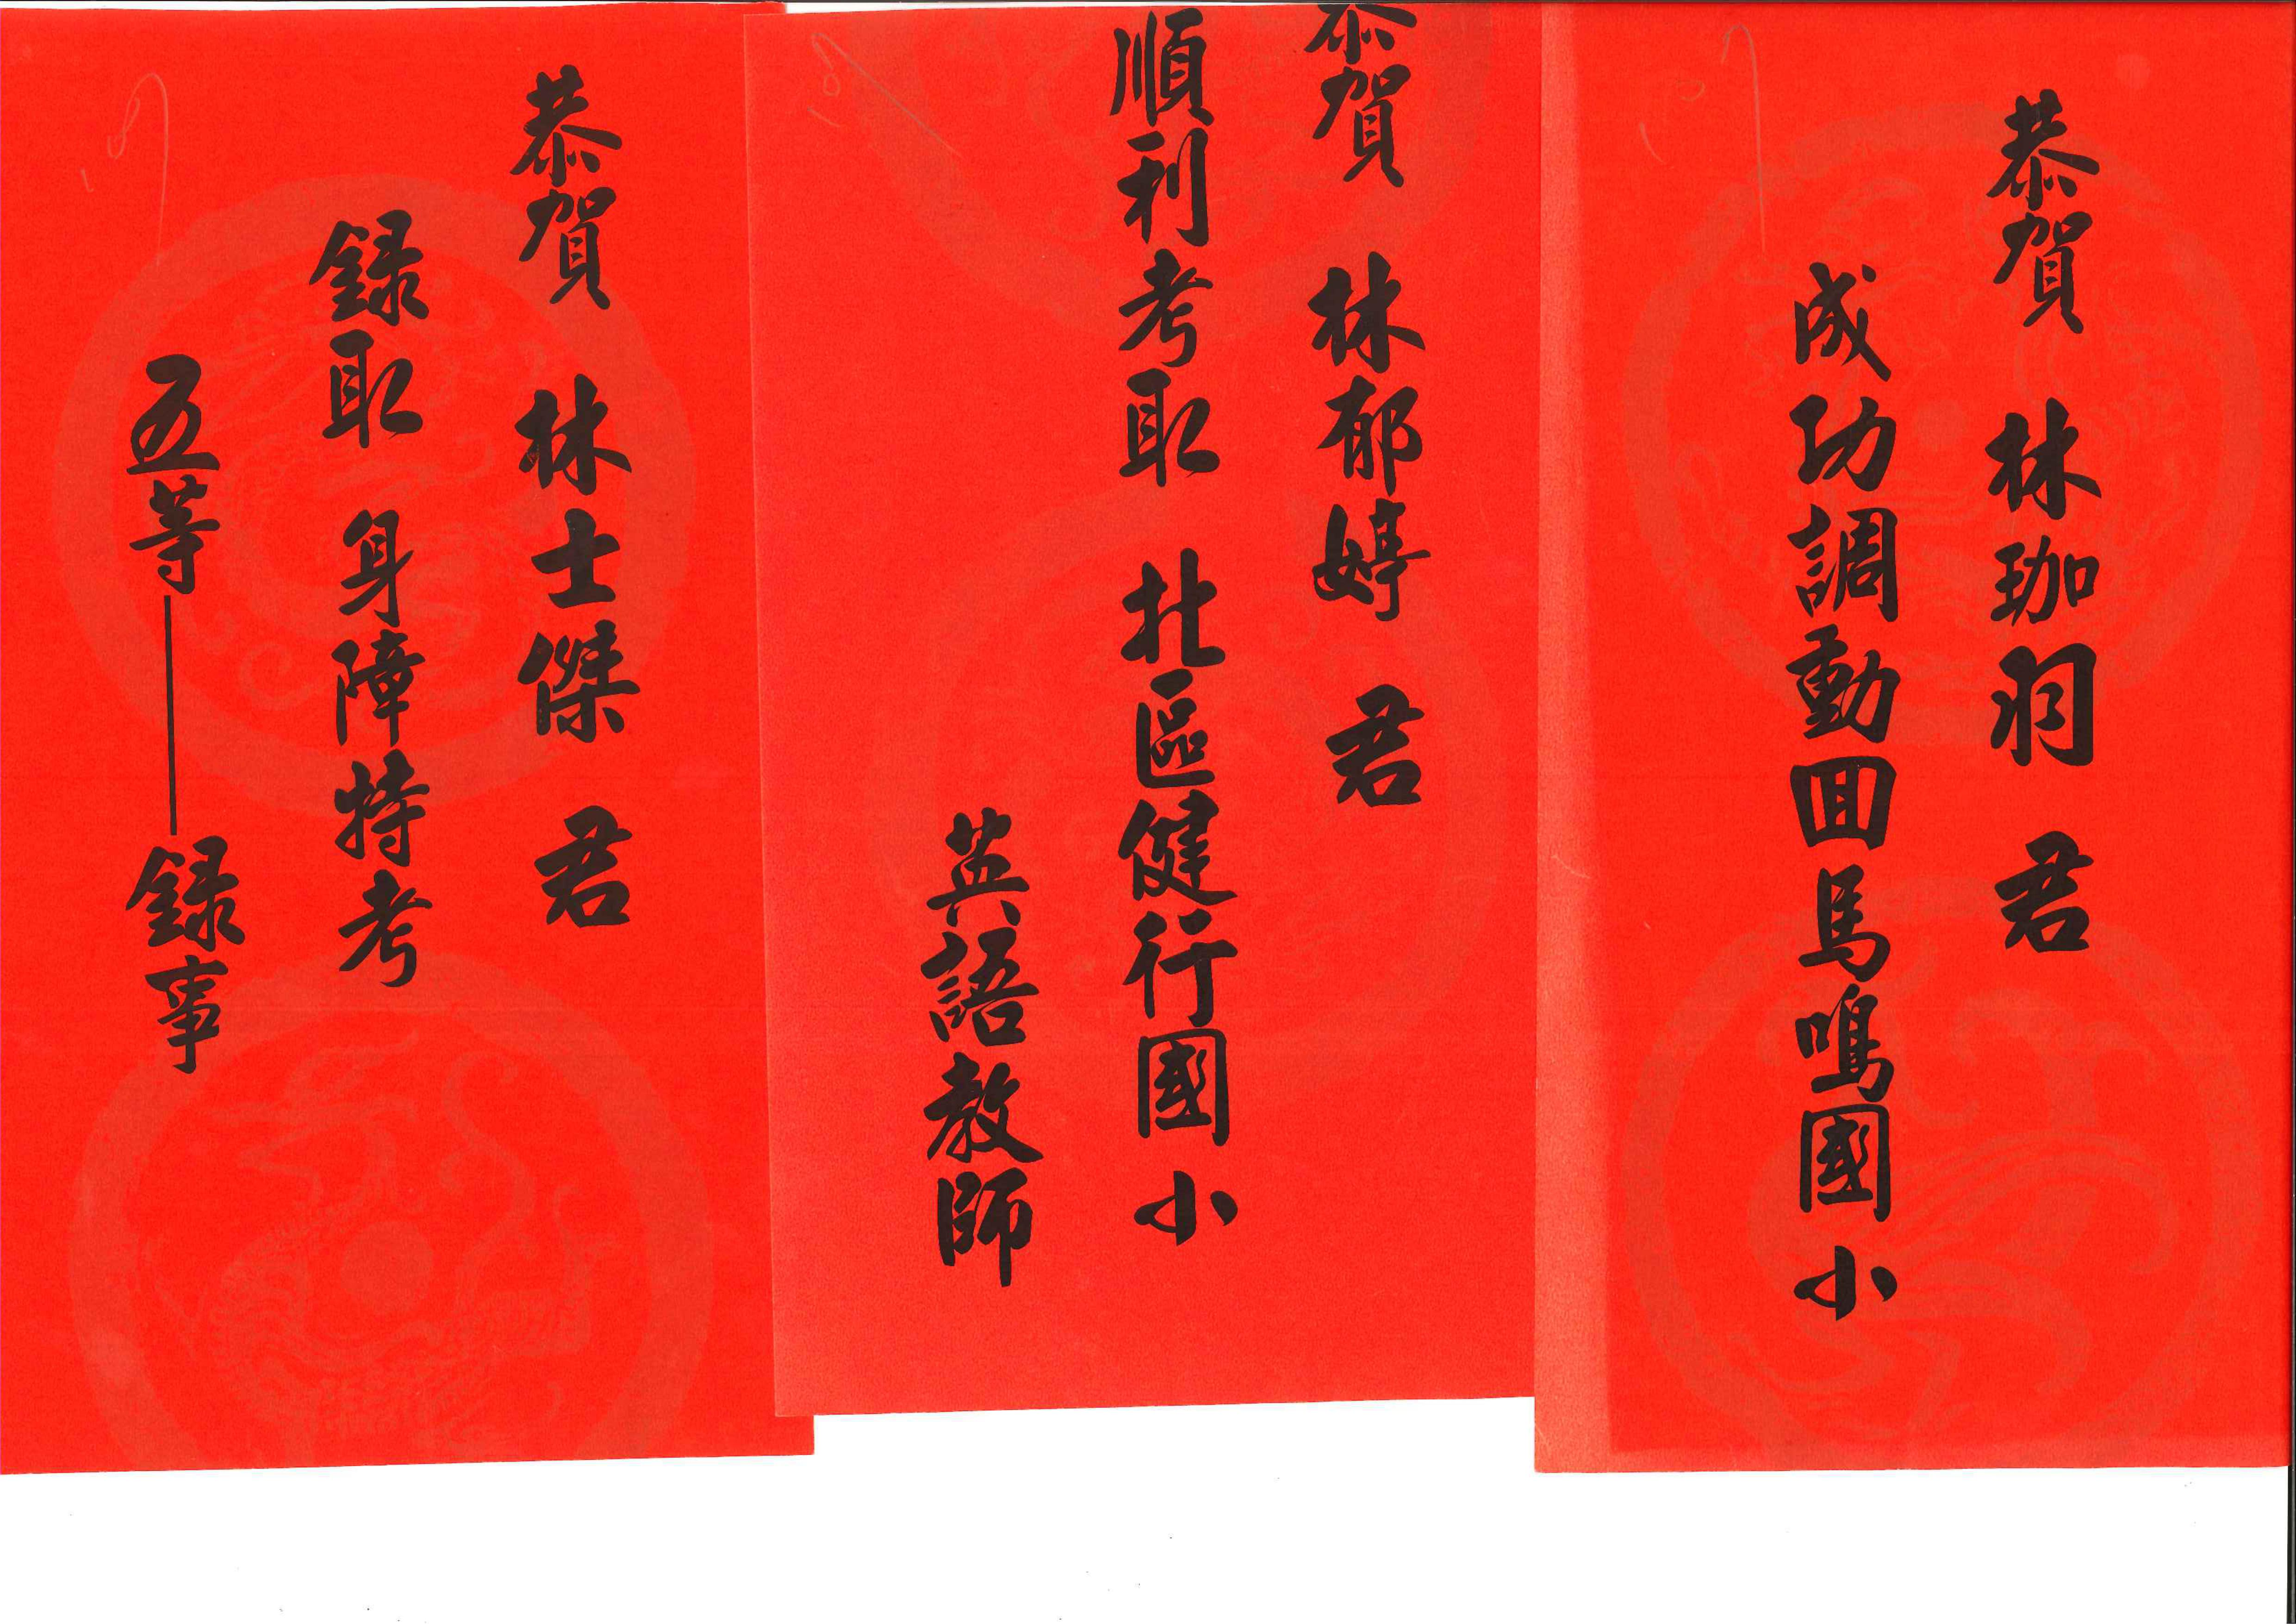 恭賀 林珈羽 君
成功調動回馬鳴國小
恭賀 林郁婷 君
順利考取 北區健行國小
英語教師
恭賀 林士傑 君
録取 身障特考
五等——録事